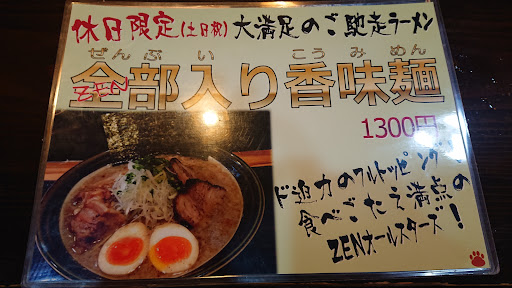 休日限定(土日祝)大満足のご馳走ラーメン
ぜんぶいり こうみめん
ZEN
全部入り香味麺
1300円
ド迫力のフルトッピング
食べごたえ満点の
ZENオールスターズ!